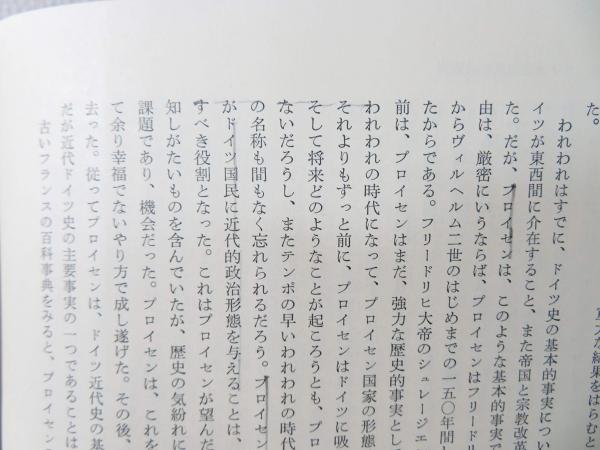 重大な結果をはらむと
た。
われわれはすでに、ドイツ史の基本的事実につい
イツが東西間に介在すること、また帝国と宗教改革
た。だが、プロイセンは、このような基本的事実で
由は、厳密にいうならば、プロイセンはフリードリ
からヴィルヘルム二世のはじめまでの一五〇年間し
たからである。フリードリヒ大帝のシュレージエ
前は、プロイセンはまだ、強力な歴史的事実とし
われわれの時代になって、プロイセン国家の形態
それよりもずっと前に、プロイセンはドイツに吸
そして将来どのようなことが起ころうとも、プロ
ないだろうし、またテンポの早いわれわれの時代
の名称も間もなく忘れられるだろう。プロイセン
がドイツ国民に近代的政治形態を与えることは、
すべき役割となった。これはプロイセンが望んだ
知しがたいものを含んでいたが、歴史の気紛れに
課題であり、機会だった。プロイセンは、これを
て余り幸福でないやり方で成し遂げた。その後、
去った。従ってプロイセンは、ドイツ近代史の基
だが近代ドイツ史の主要事実の一つであることは
古いフランスの百科事典をみると、プロイセン